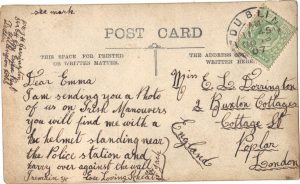 see mark
POST CARD
THIS SPACE FOR PRINTED
OR WRITTEN MATTER.
THE ADDRESS
WRITTEN HERE.
DUBLIN
07
Dear Emma
I am sending you a Photo
of us on Irish Manouvers
you will find me with a
helmet standing near
the Police station and
over against the wall
Your Loving
Miss E. L. Dorrington
2 Buxton Cottages
Cottage St
Poplar
London
England